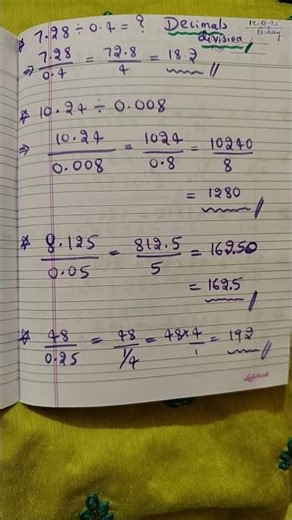 7.28 ÷ 0.4 = ? Decimals
division
⇒ 7.28/0.4 = 72.8/4 = 18.2
10.24 ÷ 0.008
⇒ 10.24/0.008 = 1024/0.8 = 10240/8
= 1280
8.125/0.05 = 812.5/5 = 162.50
= 162.5
48/0.25 = 48/1/4 = 48×4/1 = 192